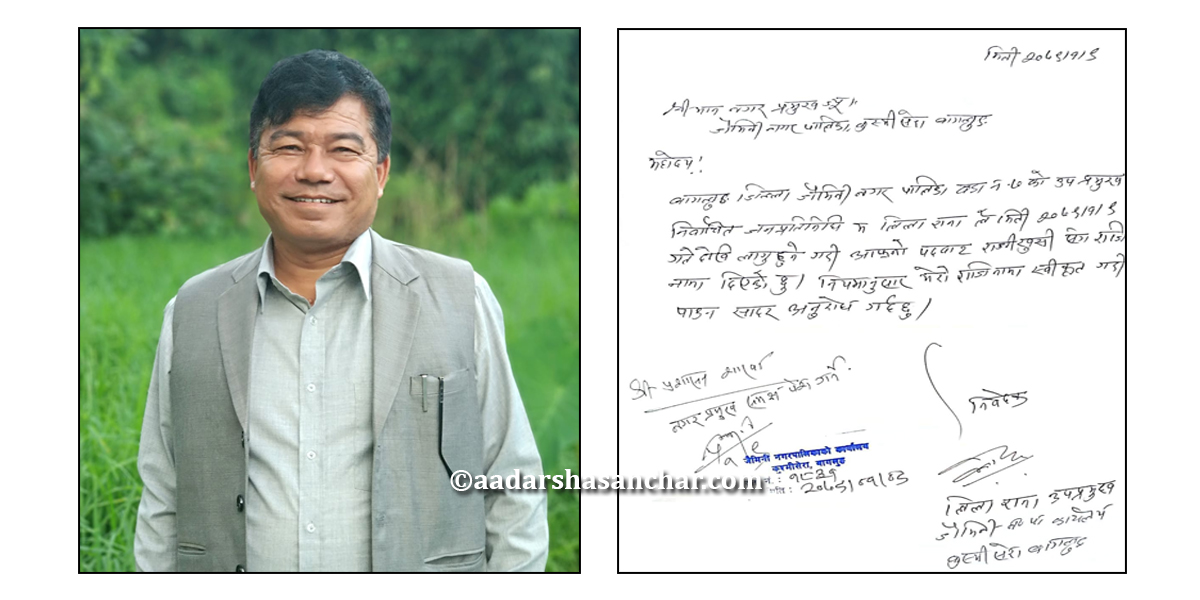 मिती २०७९।१।९
श्रीमान नगर प्रमुख ज्यू॥
जैमिनी नगर पालिका, कुश्मीसेरा बागलुङ
महोदय!
बागलुङ जिल्ला जैमिनी नगर पालिका वडा नं ७ को उप प्रमुख
निर्वाचित जनप्रतिनिधि म लिला राना ले मिती २०७९।१।९
गते देखि लागु हुने गरी आफ्नो पदबाट राजीखुशी राजि
नामा दिएको छु। नियमानुसार मेरो राजिनामा स्वीकृत गरी
पाउन सादर अनुरोध गर्दछु।
श्री प्रशासन शाखा
नगर प्रमुख समक्ष पेश गर्ने.
निवेदक
जैमिनी नगरपालिकाको कार्यालय
कुश्मीसेरा, बागलुङ
©aadarshasanchar.com
लिला राना उपप्रमुख
जैमिनी न. पा. कार्यालय
कुश्मीसेरा बागलुङ